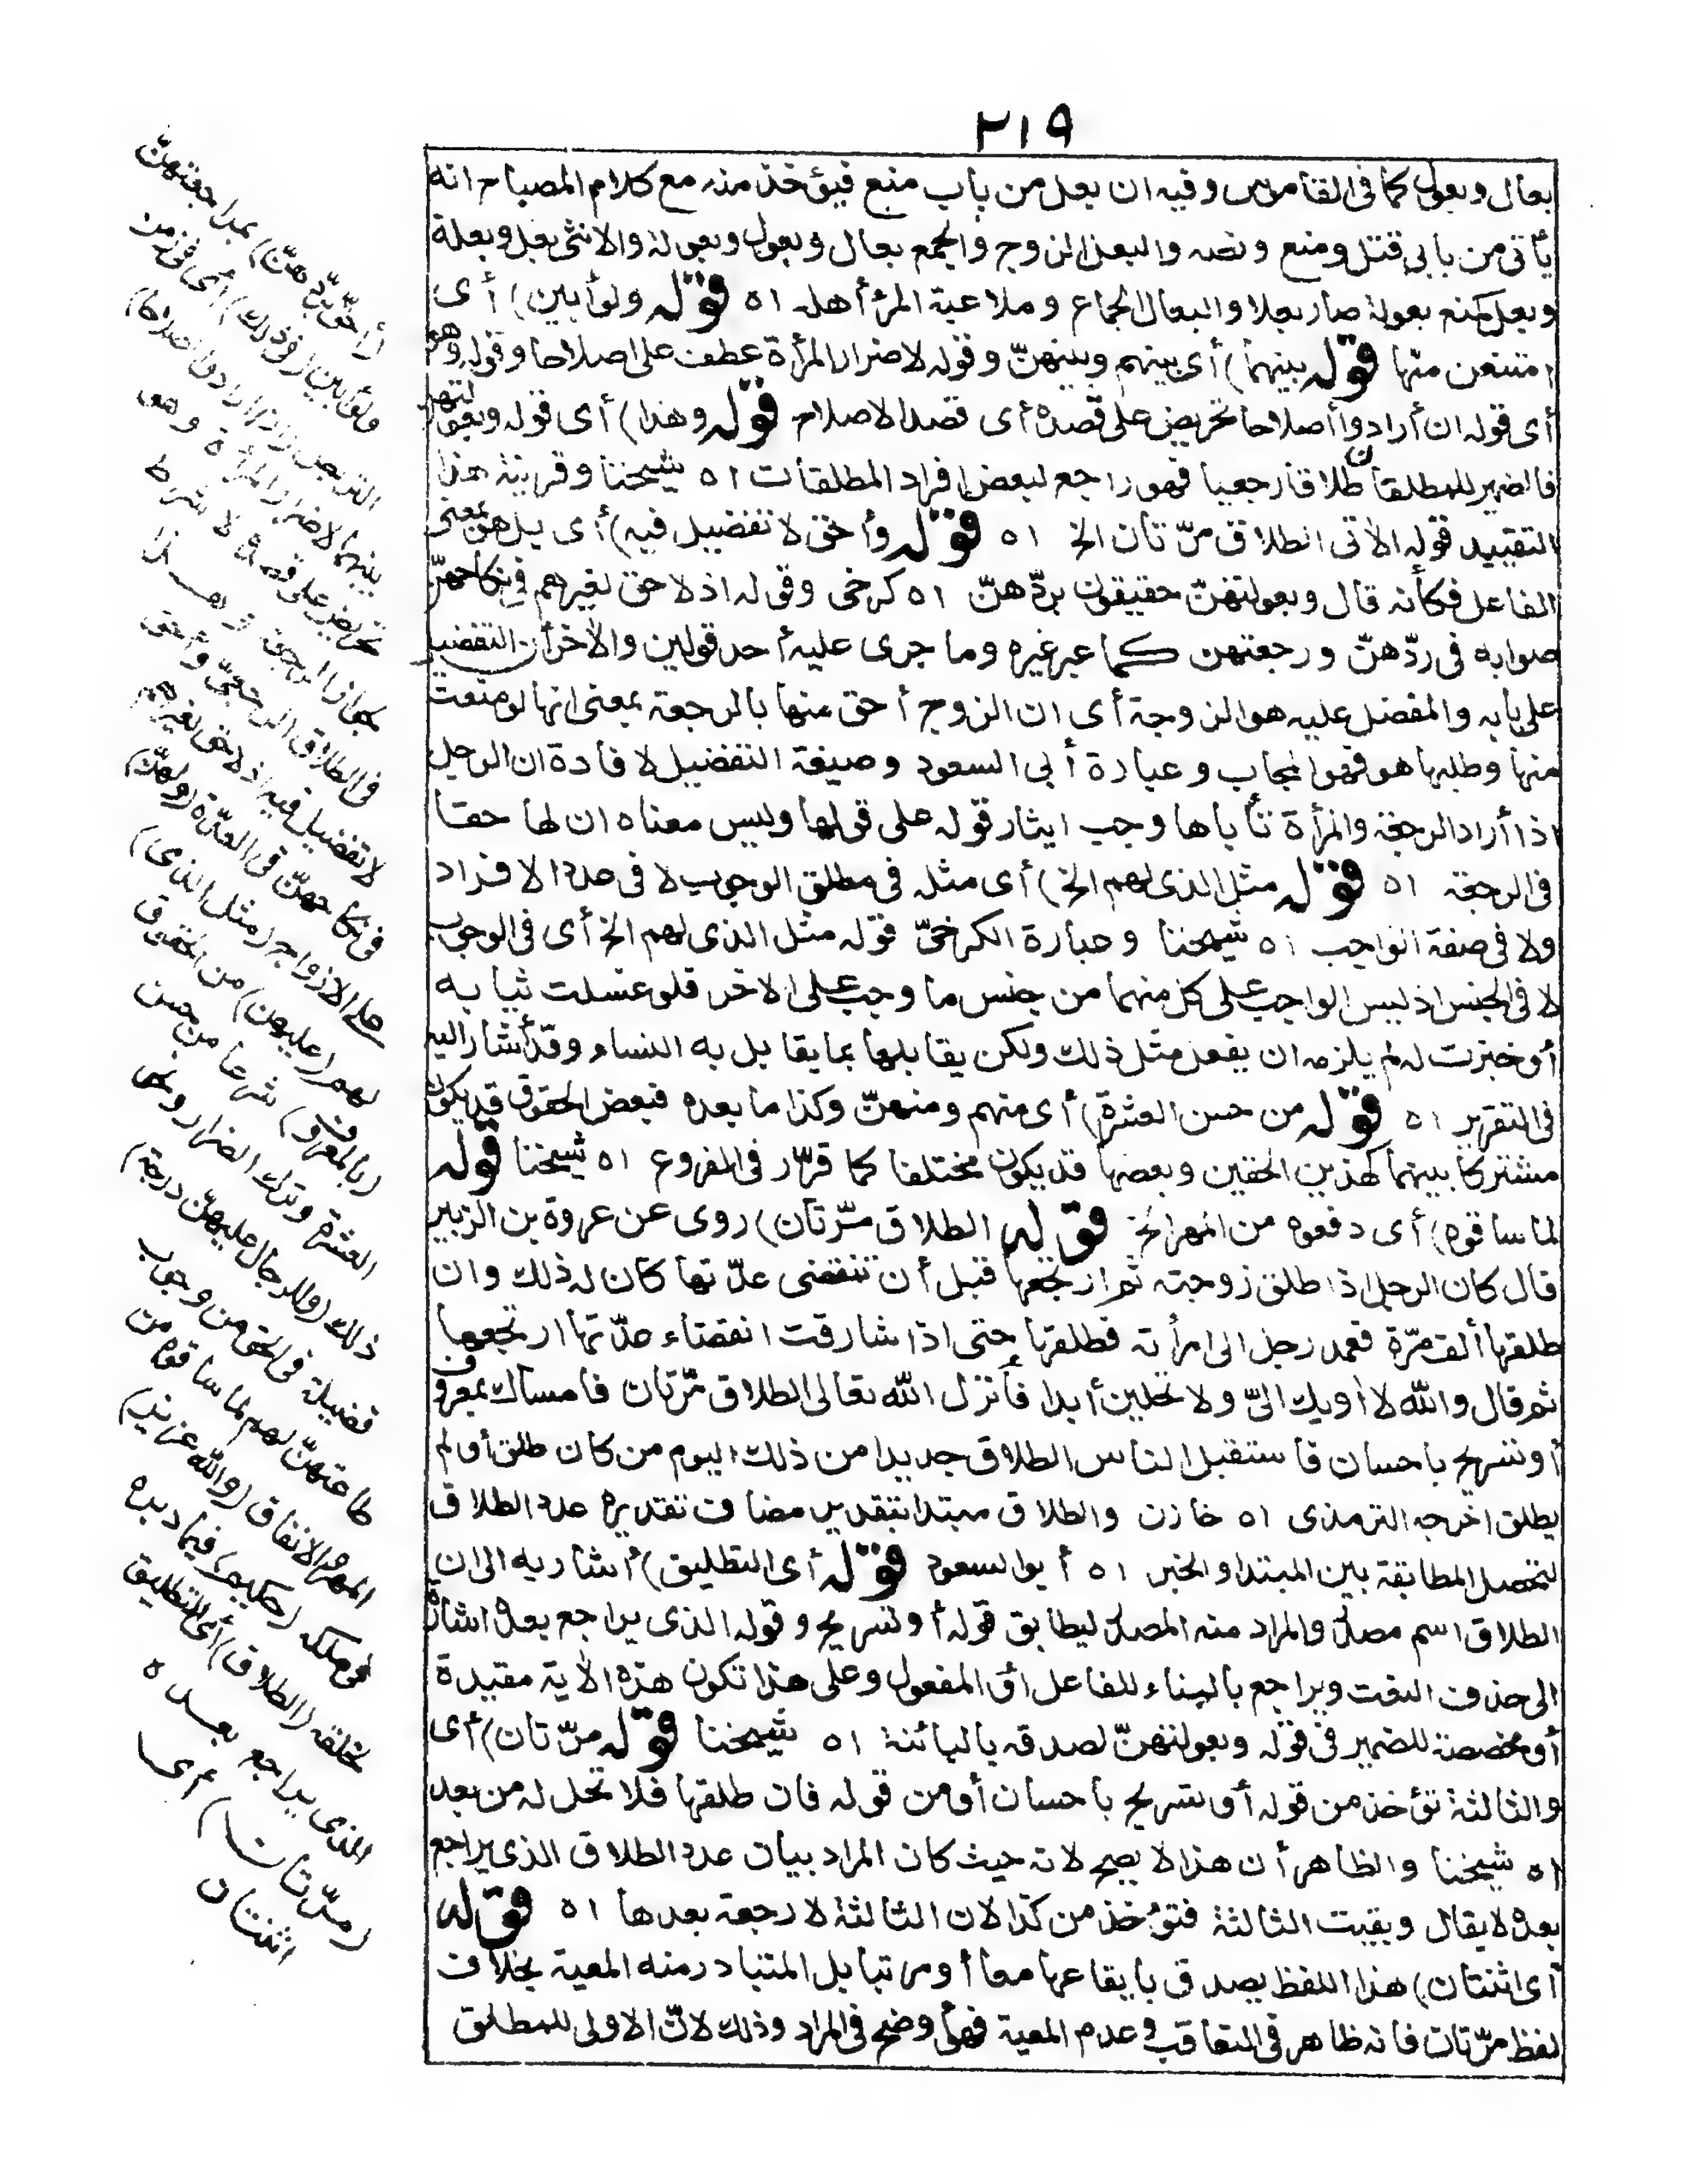 ٢١٩
بعال وبعول كما في القاموس وفيه ان بعل من باب منع فيؤخذ منه مع كلام المصباح انه
يأتى من بابي قتل ومنع ونصه والبعل الزوج والجمع بعال وبعول وبعولة والانثى بعل وبعلة
وبعل كمنع بعولة صار بعلا والبعال الجماع وملاعبة المرأ أهله اه قوله ولو أبين) أى
امتنعن منها قوله بينهما) أى بينهم وبينهنّ وقوله لاضرار المرأة عطف على اصلاحا وقوله وهو
أى قوله ان أرادوا أصلاحا تحريض على قصده أى قصد الاصلاح قوله وهذا) أى قوله وبعولتهن
فالضمير للمطلقات طلاقا رجعيا فهو راجع لبعض افراد المطلقات اه شيخنا وقرينة هذا
التقييد قوله الآتى الطلاق مرّتان الخ اه قوله وأحق لا تفضيل فيه) أى بل هو بمعنى
الفاعل فكأنه قال وبعولتهنّ حقيقون بردّهنّ اه كرخى وقوله اذ لا حق لغيرهم في نكاحهنّ
صوابه فى ردّهنّ ورجعتهن كما عبر غيره وما جرى عليه أحد قولين والآخر أن التفضيل
على بابه والمفضل عليه هو الزوجة أى ان الزوج أحق منها بالرجعة بمعنى انها لو منعت
منها وطلبها هو فهو المجاب وعبارة أبى السعود وصيغة التفضيل لافادة ان الرجل
اذا أراد الرجعة والمرأة تأباها وجب ايثار قوله على قولها وليس معناه ان لها حقا
فى الرجعة اه قوله مثل الذى لهم الخ) أى مثله فى مطلق الوجوب لا فى عدد الافراد
ولا فى صفة الواجب اه شيخنا وعبارة الكرخىّ قوله مثل الذى لهم الخ أى فى الوجوب
لا فى الجنس اذ ليس الواجب على كل منهما من جنس ما وجب على الاخر فلو غسلت ثيابه
أو خبزت له لم يلزمه ان يفعل مثل ذلك ولكن يقابلها بما يقابل به النساء وقد أشار اليه
فى التقرير اه قوله من حسن العشرة) أى منهم ومنهنّ وكذا ما بعده فبعض الحقوق قد يكون
مشتركا بينهما كهذين الحقين وبعضها قد يكون مختلفا كما قرّر فى الفروع اه شيخنا قوله
لما ساقوه) أى دفعوه من المهر الخ قوله الطلاق مرّتان) روى عن عروة بن الزبير
قال كان الرجل اذا طلق زوجته ثم ارتجعها قبل أن تنقضى عدّتها كان له ذلك وان
طلقها ألف مرّة فعمد رجل الى امرأته فطلقها حتى اذا شارفت انقضاء عدّتها ارتجعها
ثم قال والله لا أويك الىّ ولا تحلين أبدا فأنزل الله تعالى الطلاق مرّتان فامساك بمعروف
أو تسريح باحسان فاستقبل الناس الطلاق جديدا من ذلك اليوم من كان طلق أو لم
يطلق اخرجه الترمذى اه خازن والطلاق مبتدا بتقدير مضاف تقديره عدد الطلاق
لتحصل المطابقة بين المبتدا والخبر اه أبو السعود قوله أى التطليق) أشار به الى ان
الطلاق اسم مصدر والمراد منه المصدر ليطابق قوله أو تسريح وقوله الذى يراجع بعده اشارة
الى حذف النعت ويراجع بالبناء للفاعل أو المفعول وعلى هذا تكون هذه الآية مقيدة
أو مخصصة للضمير فى قوله وبعولتهنّ لصدقه بالبائنة اه شيخنا قوله مرّتان) أى
والثالثة تؤخذ من قوله أو تسريح باحسان أو من قوله فان طلقها فلا تحل له من بعد
اه شيخنا والظاهر أن هذا لا يصح لانه حيث كان المراد بيان عدد الطلاق الذى يراجع
بعده لا يقال وبقيت الثالثة فتؤخذ من كذا لان الثالثة لا رجعة بعدها اه قوله
أى اثنتان) هذا اللفظ يصدق بايقاعها معا أو مرتبا بل المتبادر منه المعية بخلاف
لفظ مرّتان فانه ظاهر فى التعاقب وعدم المعية فهو أوضح فى المراد وذلك لانّ الاولى للمطلق
(أحق بردّهنّ) بمراجعتهنّ
ولو أبين (فى ذلك) أى فى زمن
التربص (ان أرادوا اصلاحا)
بينهما لاضرار المرأة وهو
تحريض على قصده لا شرط
لجواز الرجعة وهذا
فى الطلاق الرجعىّ وأحق
لا تفضيل فيه اذ لا حق لغيرهم
فى نكاحهنّ فى العدّة (ولهنّ)
على الازواج (مثل الذى)
لهم (عليهن) من الحقوق
(بالمعروف) شرعا من حسن
العشرة وترك الضرار ونحو
ذلك (وللرجال عليهنّ درجة)
فضيلة فى الحق من وجوب
طاعتهنّ لهم لما ساقوه من
المهر والانفاق (والله عزيز)
فى ملكه (حكيم) فيما دبره
لخلقه (الطلاق) أى التطليق
الذى يراجع بعده
(مرّتان) أى
اثنتان